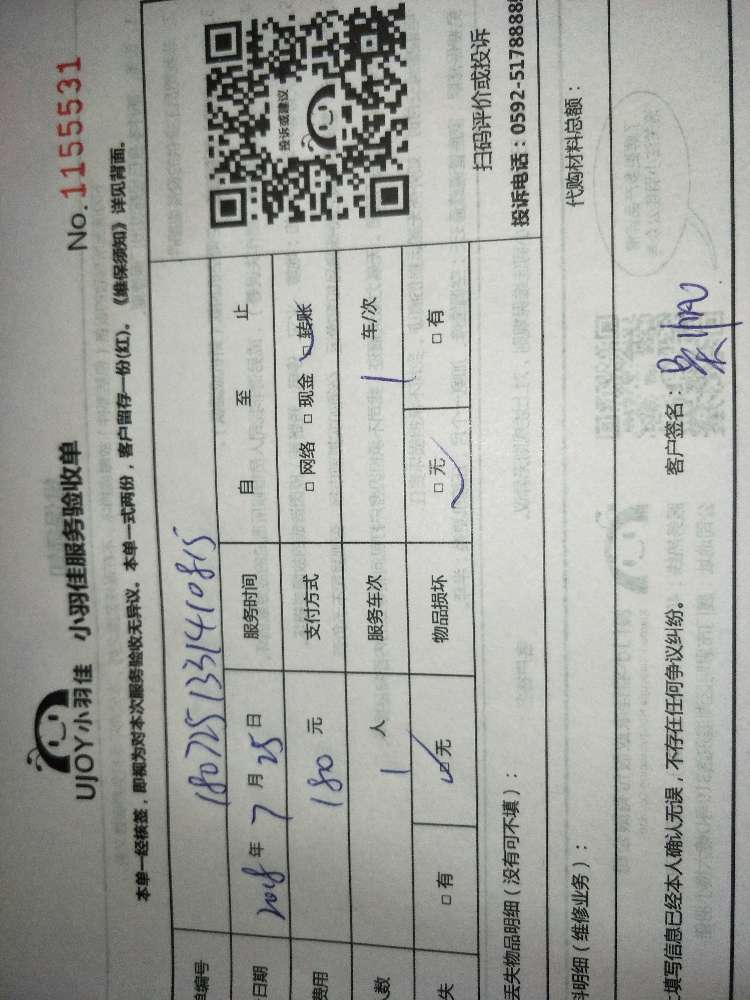 UJOY小羽佳 小羽佳服务验收单 No.1155531
本单一经核签，即视为对本次服务验收无异议。本单一式两份，客户留存一份(红)。《维保须知》详见背面。
编号 1807251331410815
投诉或建议
日期 2018年7月25日 服务时间 自 至 止
费用 180元 支付方式 □网络 □现金 □转账
数 1人 服务车次 1车/次
失 □有 □无 物品损坏 □无 □有
扫码评价或投诉
丢失物品明细（没有可不填）： 投诉电话：0592-5178888
料明细（维修业务）： 代购材料总额：
填写信息已经本人确认无误，不存在任何争议纠纷。 客户签名：